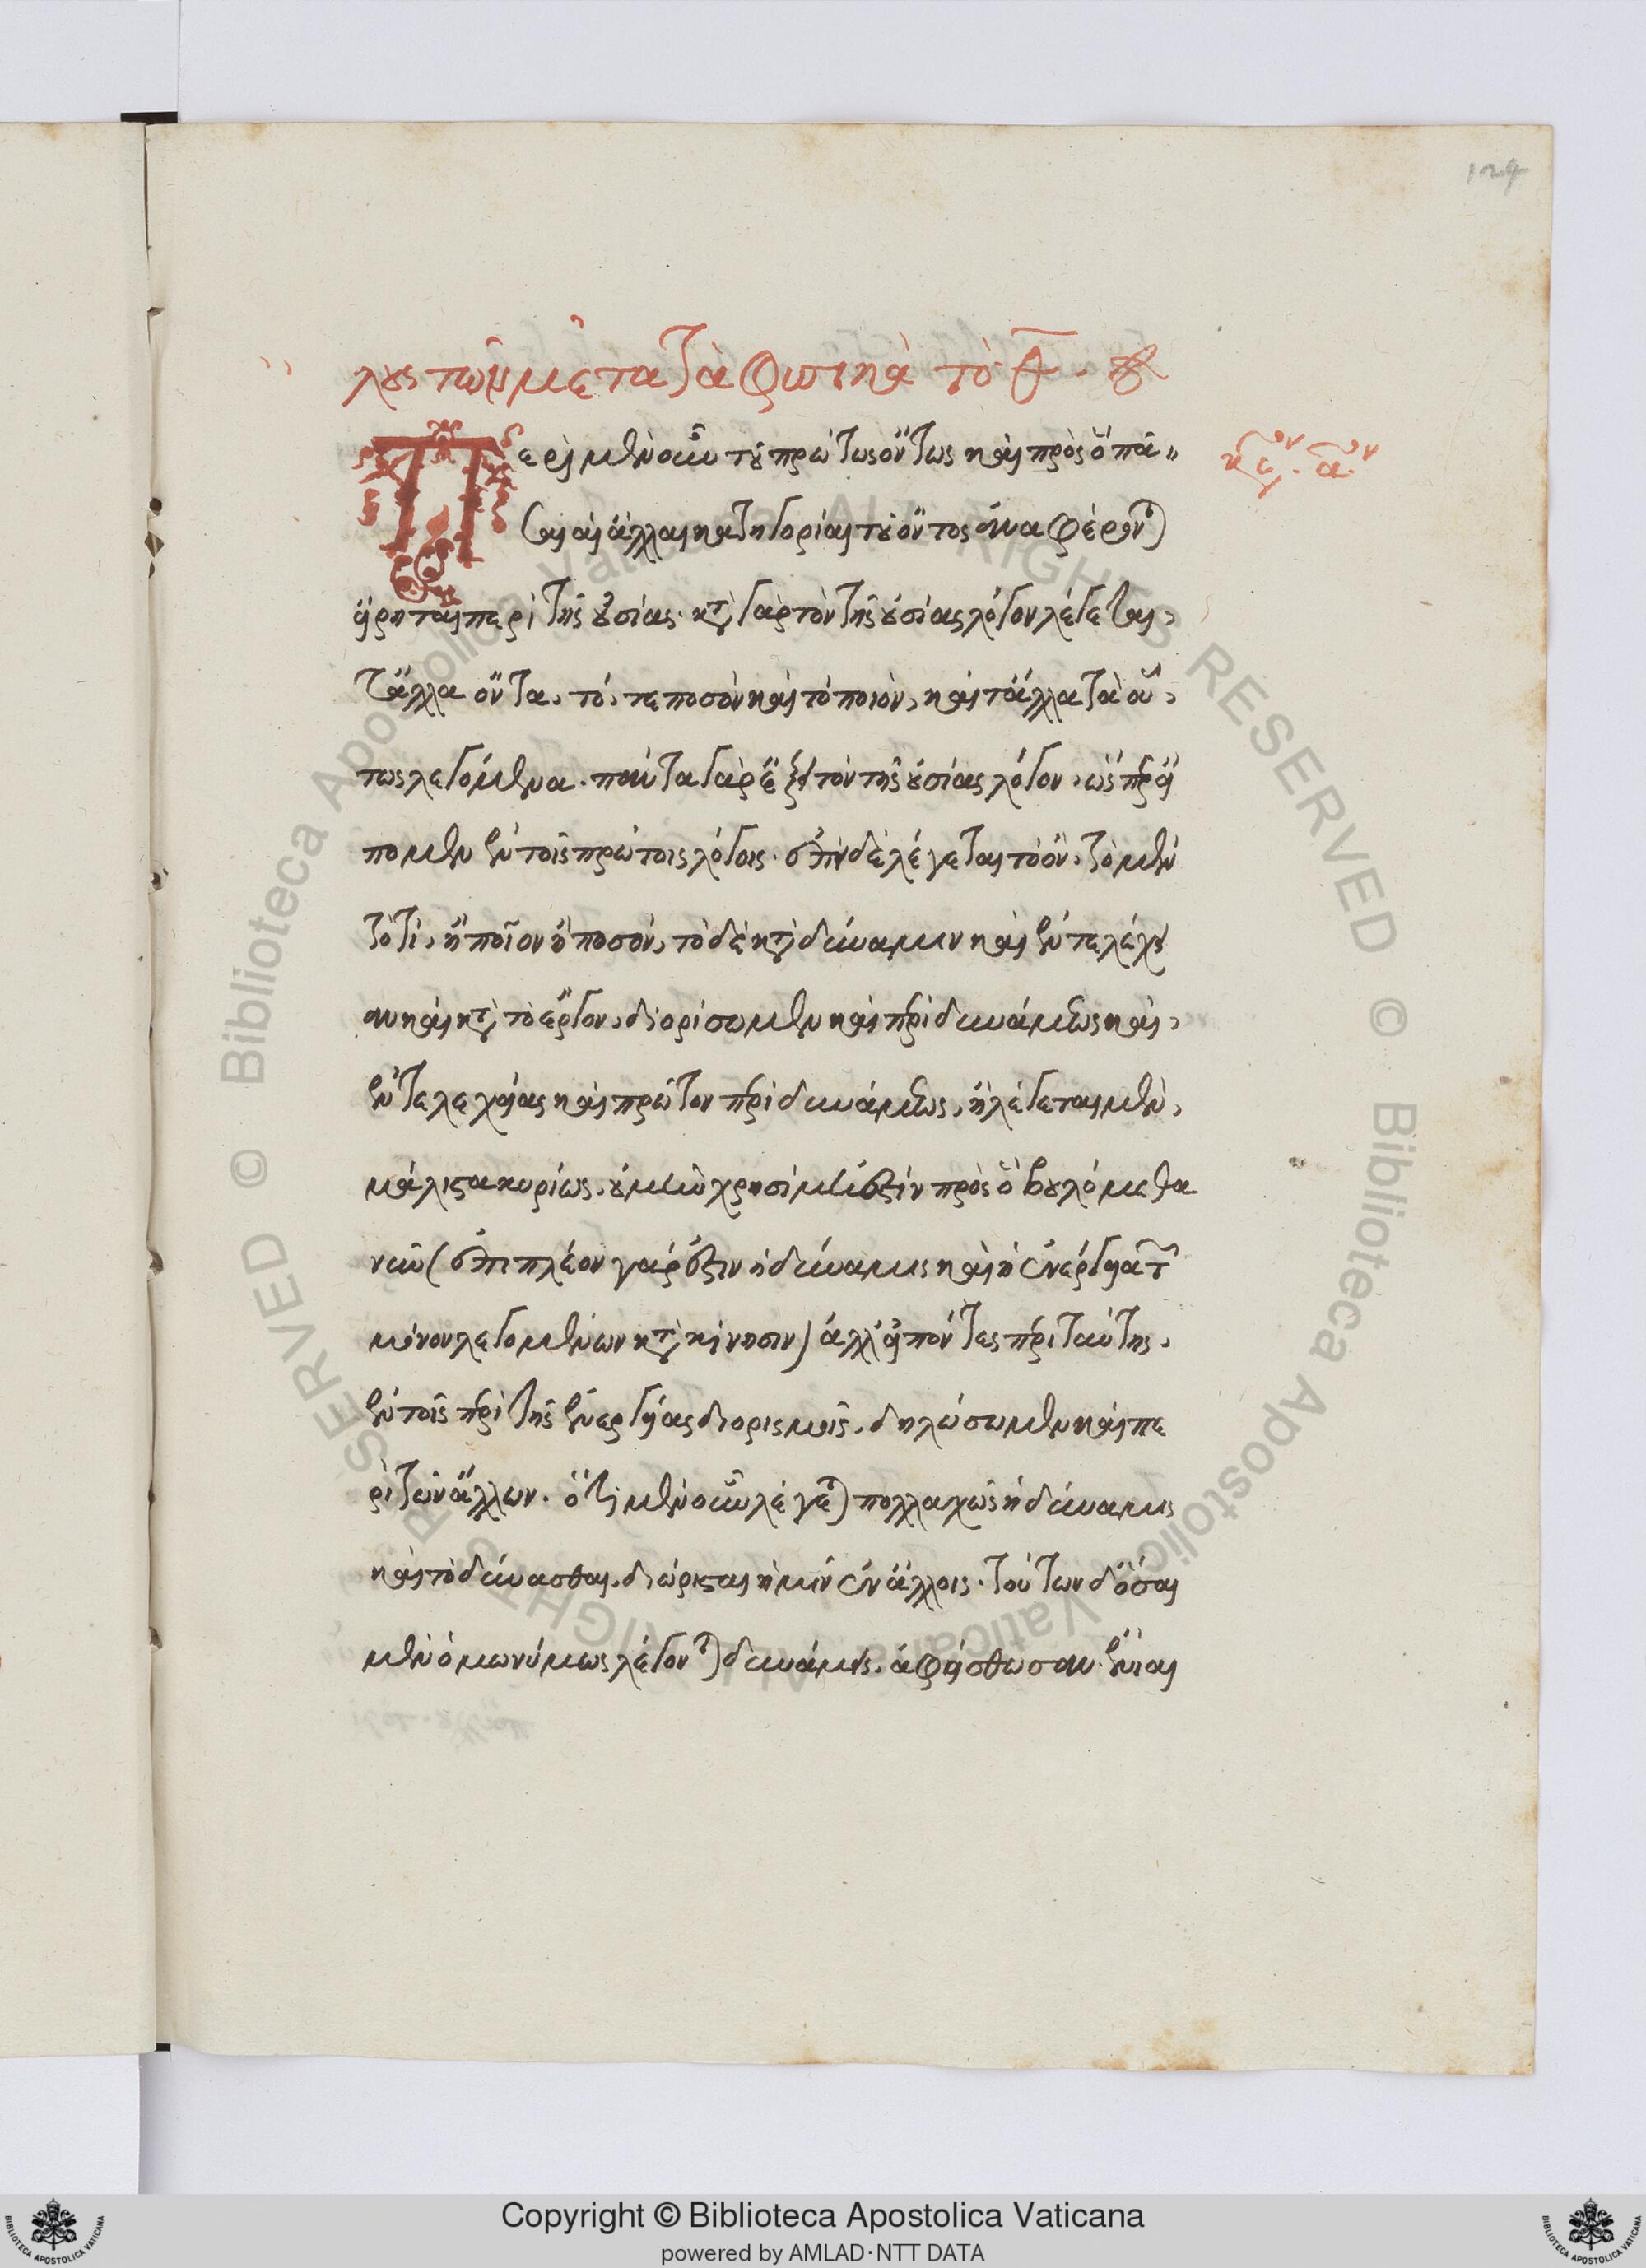 124
λους τῶν μετὰ τὰ φυσικὰ τὸ θ.
κεφ. αον
Περὶ μὲν οὖν τοῦ πρώτως ὄντως καὶ πρὸς ὃ πᾶ
σαι αἱ ἄλλαι κατηγορίαι τοῦ ὄντος ἀναφέρονται
εἴρηται περὶ τῆς οὐσίας. κατὰ γὰρ τὸν τῆς οὐσίας λόγον λέγεται,
τἄλλα ὄντα, τό, τε ποσὸν καὶ τὸ ποιὸν, καὶ τἄλλα τὰ οὕ,
τως λεγόμενα. πάντα γὰρ ἕξει τὸν τῆς οὐσίας λόγον, ὥσπερ εἴ
πομεν ἐν τοῖς πρώτοις λόγοις. ἐπεὶ δὲ λέγεται τὸ ὂν, τὸ μὲν
τὸ τί, ἢ ποῖον ἢ ποσόν, τὸ δὲ κατὰ δύναμιν καὶ ἐντελέχει
αν καὶ κατὰ τὸ ἔργον, διορίσωμεν καὶ περὶ δυνάμεως καὶ,
ἐντελεχείας καὶ πρῶτον περὶ δυνάμεως, ἣ λέγεται μὲν,
μάλιστα κυρίως, οὐ μὴν χρησίμη ἐστὶν πρὸς ὃ βουλόμεθα
νῦν (ἐπὶ πλέον γάρ ἐστιν ἡ δύναμις καὶ ἡ ἐνέργεια τῶν
μόνον λεγομένων κατὰ κίνησιν) ἀλλ' εἰπόντες περὶ ταύτης,
ἐν τοῖς περὶ τῆς ἐνεργείας διορισμοῖς, δηλώσωμεν καὶ πε
ρὶ τῶν ἄλλων. ὅτι μὲν οὖν λέγεται πολλαχῶς ἡ δύναμις
καὶ τὸ δύνασθαι, διώρισται ἡμῖν ἐν ἄλλοις. τούτων δ' ὅσαι
μὲν ὁμωνύμως λέγονται δυνάμεις, ἀφείσθωσαν. ἔνιαι
Copyright © Biblioteca Apostolica Vaticana
powered by AMLAD·NTT DATA
© Biblioteca Apostolica Vaticana ALL RIGHTS RESERVED © Biblioteca Apostolica Vaticana ALL RIGHTS RESERVED
BIBLIOTECA APOSTOLICA VATICANA
BIBLIOTECA APOSTOLICA VATICANA